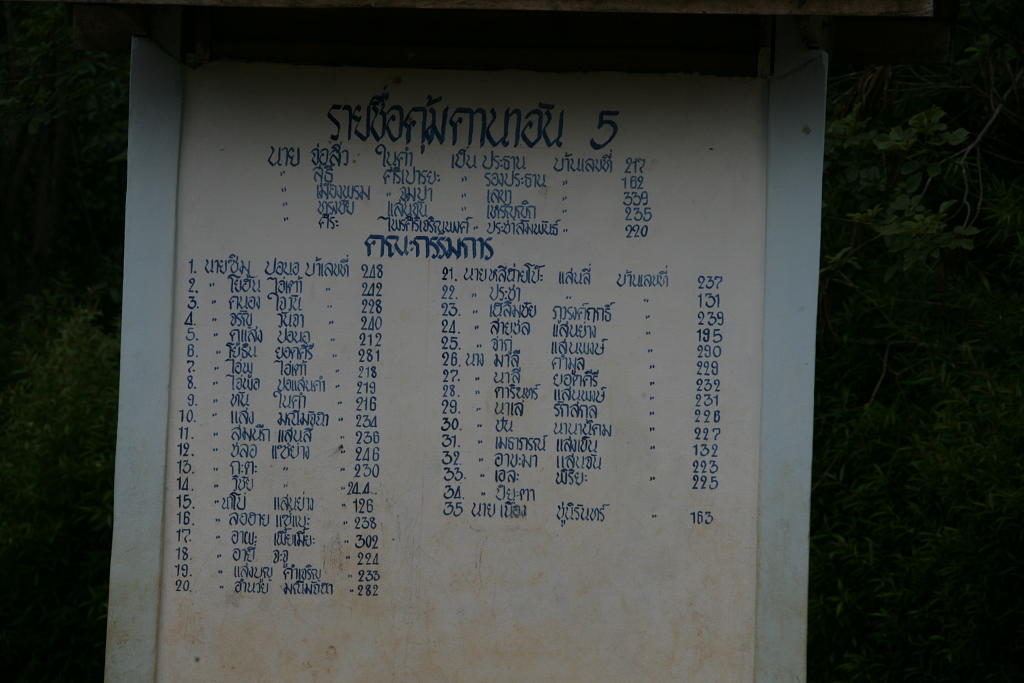 รายชื่อคุ้มคานาอัน 5
นาย จ่อสิว ในคำ เป็น ประธาน บ้านเลขที่ 217
" สุธี ศรีเปารยะ " รองประธาน " 162
" เมืองพรม " จุมปา " เลขา " 339
" ทรงชัย แสนจัน " เหรัญญิก " 235
" ศิระ ไพรคีรีเจริญพงศ์ " ประชาสัมพันธ์ " 220
คณะกรรมการ
1. นายซิม ปอนอ บ้าเลขที่ 248
2. " โยฮัน ไอ่เต้า " 242
3. " คนอง " 228
4. " จรัญ " 240
5. " ปอนอ " 212
6. " โยธิน ยอดคีรี " 281
7. " ไอ่เต้า " 218
8. " ปอแสนคำ " 219
9. " ในคำ " 216
10. " แสง มณีมธินา " 234
11. " สมนึก แสนสี่ " 236
12. " ชลอ " 246
13. " กะตะ " " 230
14. " วิชัย " 244
15. " แสนย่าง " 126
16. " ลออาย แซ่แบะ " 238
17. " อาผะ " 302
18. " อายี จะจู " 224
19. " แสงบุญ คำเจริญ " 233
20. " ชำนวย มณีมธินา " 282
21. นาย แสนสี่ บ้านเลขที่ 237
22. " ประชา " " 131
23. " เฉลิมชัย " 239
24. " สายชล แสนย่าง " 195
25. " จ่าภู แสนพงษ์ " 290
26. นาง มาลี คำมูล " 229
27. " นาสี ยอดคีรี " 232
28. " คารินทร์ แสนพงษ์ " 231
29. " นาเล รักสกุล " 226
30. " ชัน นานานิคม " 227
31. " เมธาภรณ์ แสงเย็น " 132
32. " อาบะมา แสนจัน " 223
33. " เอละ พิริยะ " 225
34. " ปิยะดา
35 นาย เนือง ชูนิรันทร์ " 163